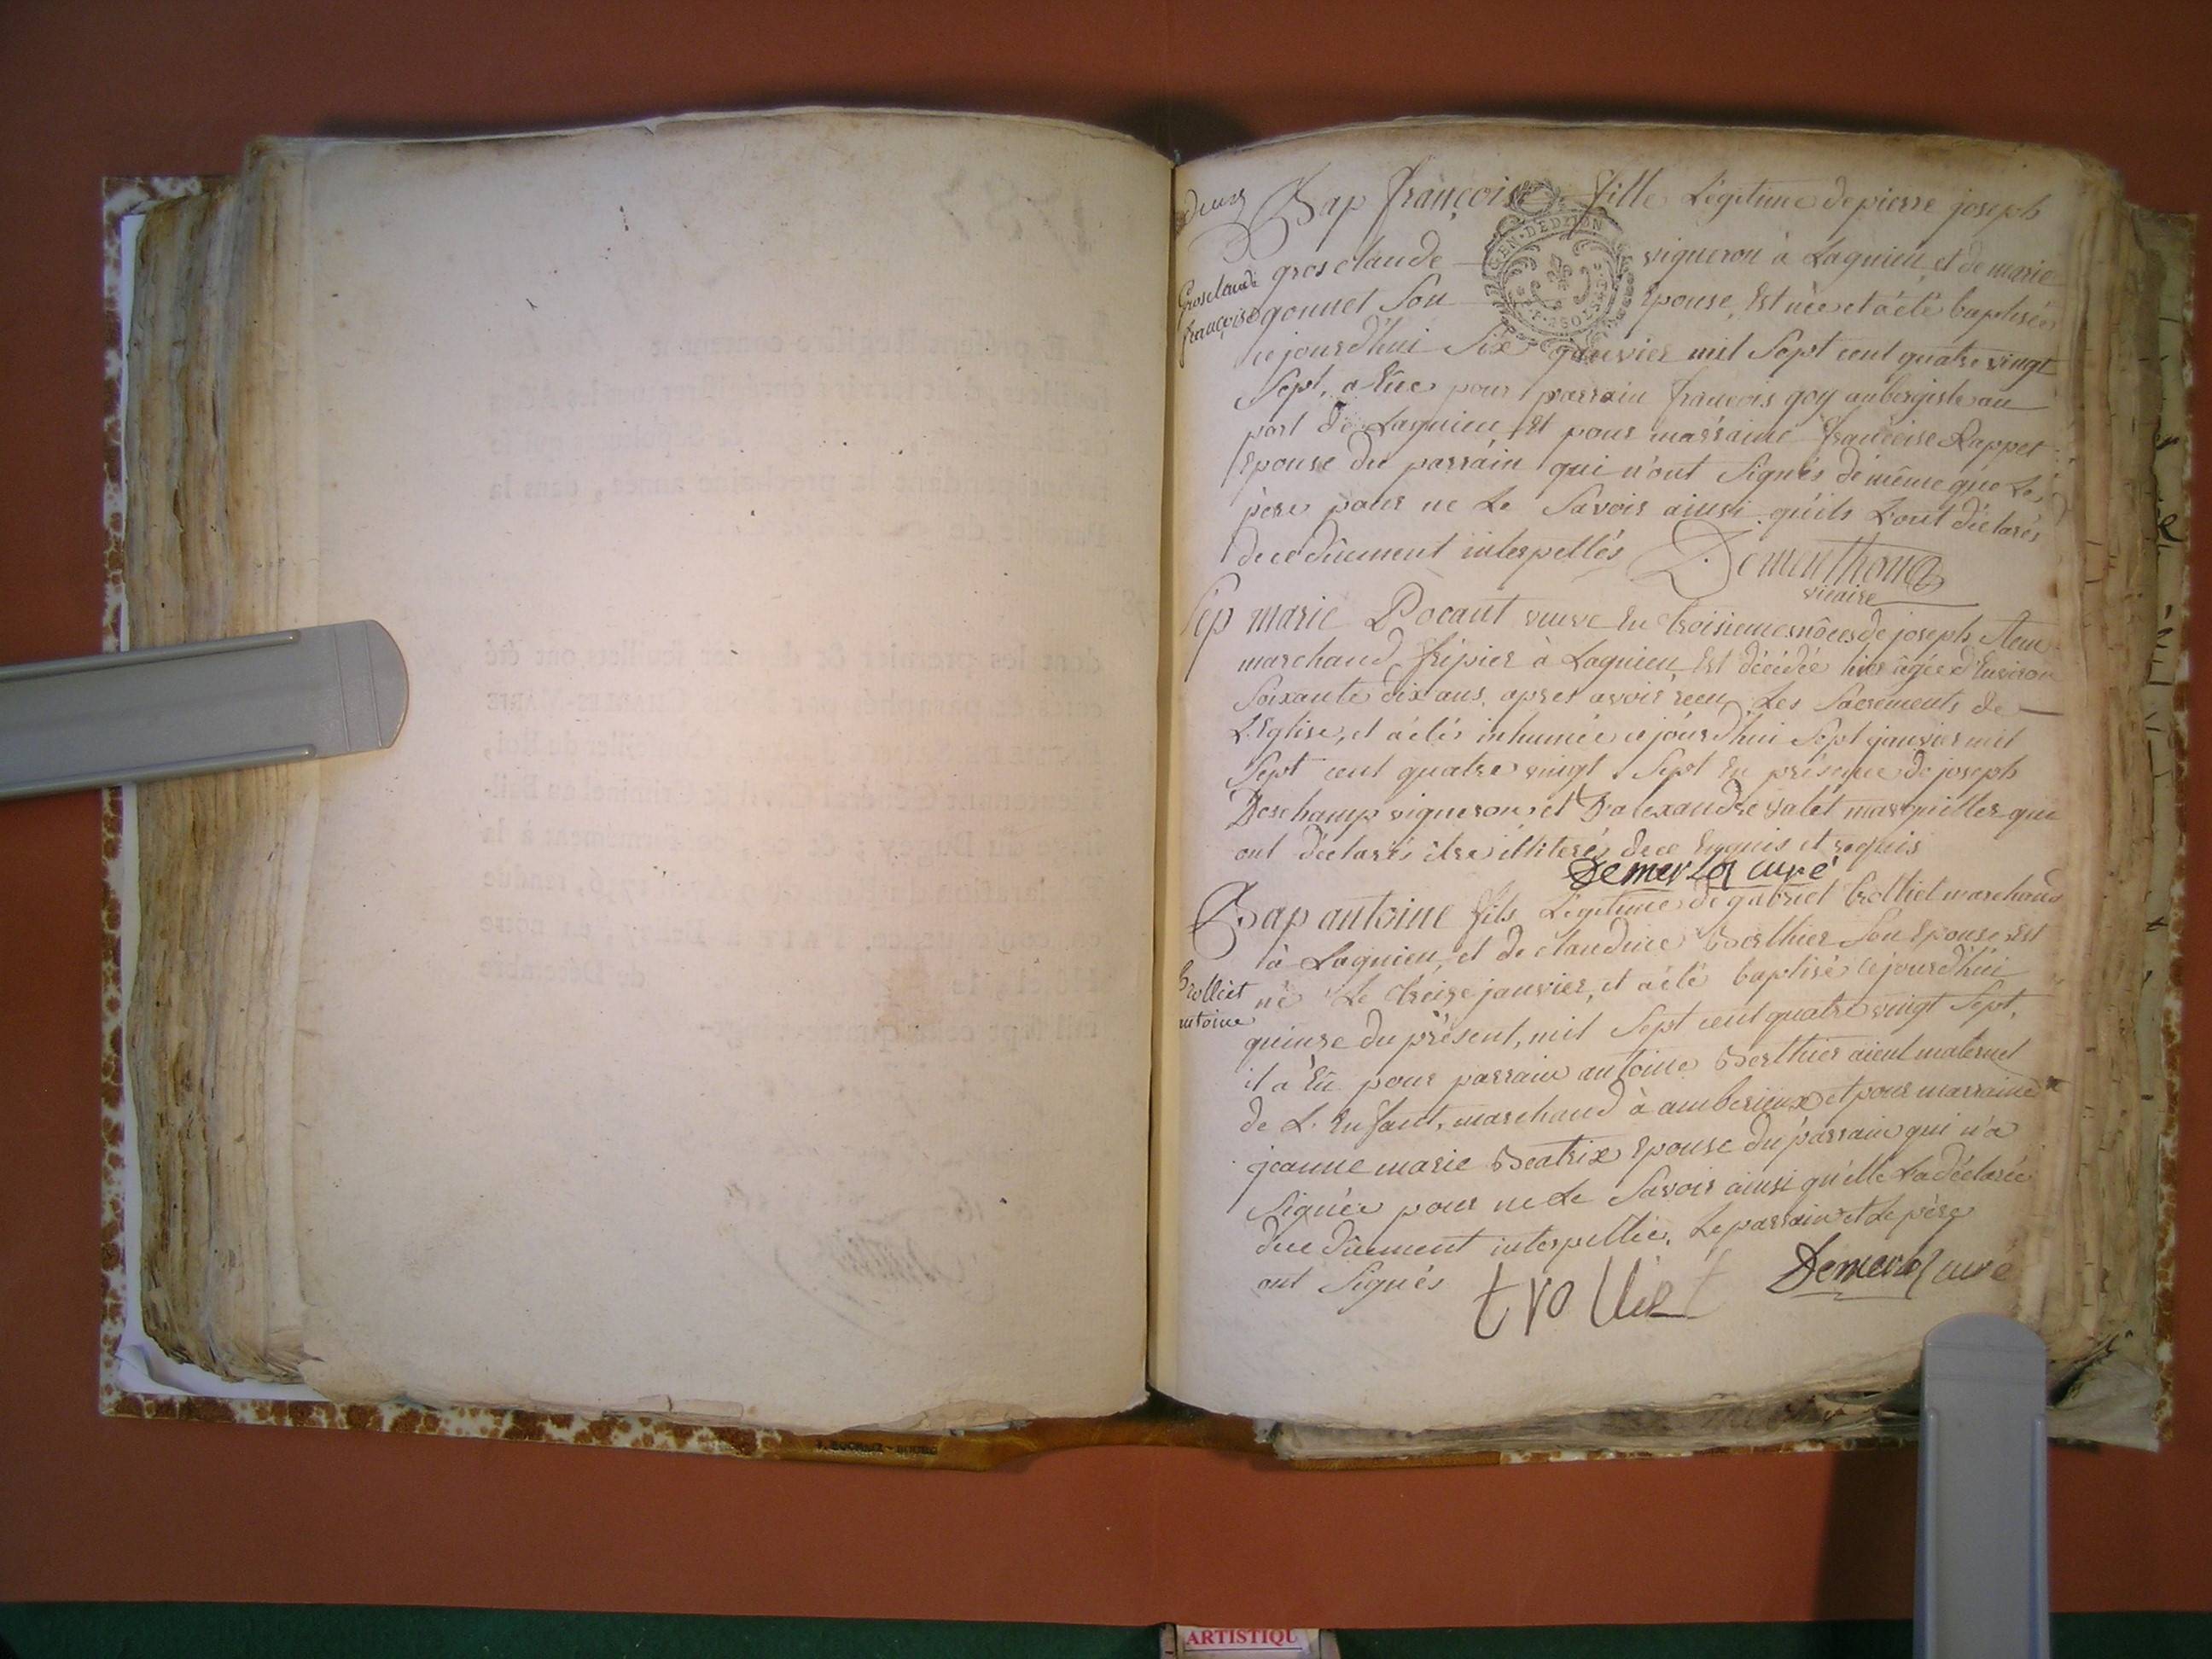 deux
Bap françoise fille Légitime de pierre joseph
grosclaude vigneron à Lagnieu, et de marie
Grosclaude
françoise
gonnet Son Epouse, Est née et a été baptisée
cejourd'hui Six janvier mil Sept cent quatre vingt
Sept, a Eûe pour parrain françois goy aubergiste au
port de Lagnieu, Et pour marraine françoise Rappet
Epouse du parrain qui n'ont Signés de même que Le
père pour ne Le Savoir ainsi qu'ils L'ont déclarés
de ce dûement interpellés
vicaire
GEN. DE DIJON
Sep marie Pocant veuve En troisiemes nôces de joseph
marchand fripier à Lagnieu, Est décédée hier âgée d'Environ
Soixante dix ans, apres avoir recu Les Sacrements de
L'Eglise, et a étés inhumée cejourd'hui Sept janvier mil
Sept cent quatre vingt Sept En présence de joseph
Deschamp vigneron et D'alexandre valet marguillier qui
ont déclarés être illiterés de ce Enquis et requis
Demerloz curé
Bap antoine fils Légitime de gabriel trolliet marchand
à Lagnieu, et de claudine Berthier Son Epouse Est
trolliet
antoine
né Le treize janvier, et a été baptisé cejourd'hui
quinze du présent, mil Sept cent quatre vingt Sept,
il a Eû pour parrain antoine Berthier aieul maternel
de L'Enfant, marchand à amberieux et pour marraine
jeanne marie Beatrix Epouse du parrain qui n'a
Signée pour ne Le Savoir ainsi qu'elle L'a déclarée
de ce dûement interpellée. Le parrain et Le père
ont Signés
trolliet
Demerloz curé
ARTISTIQU